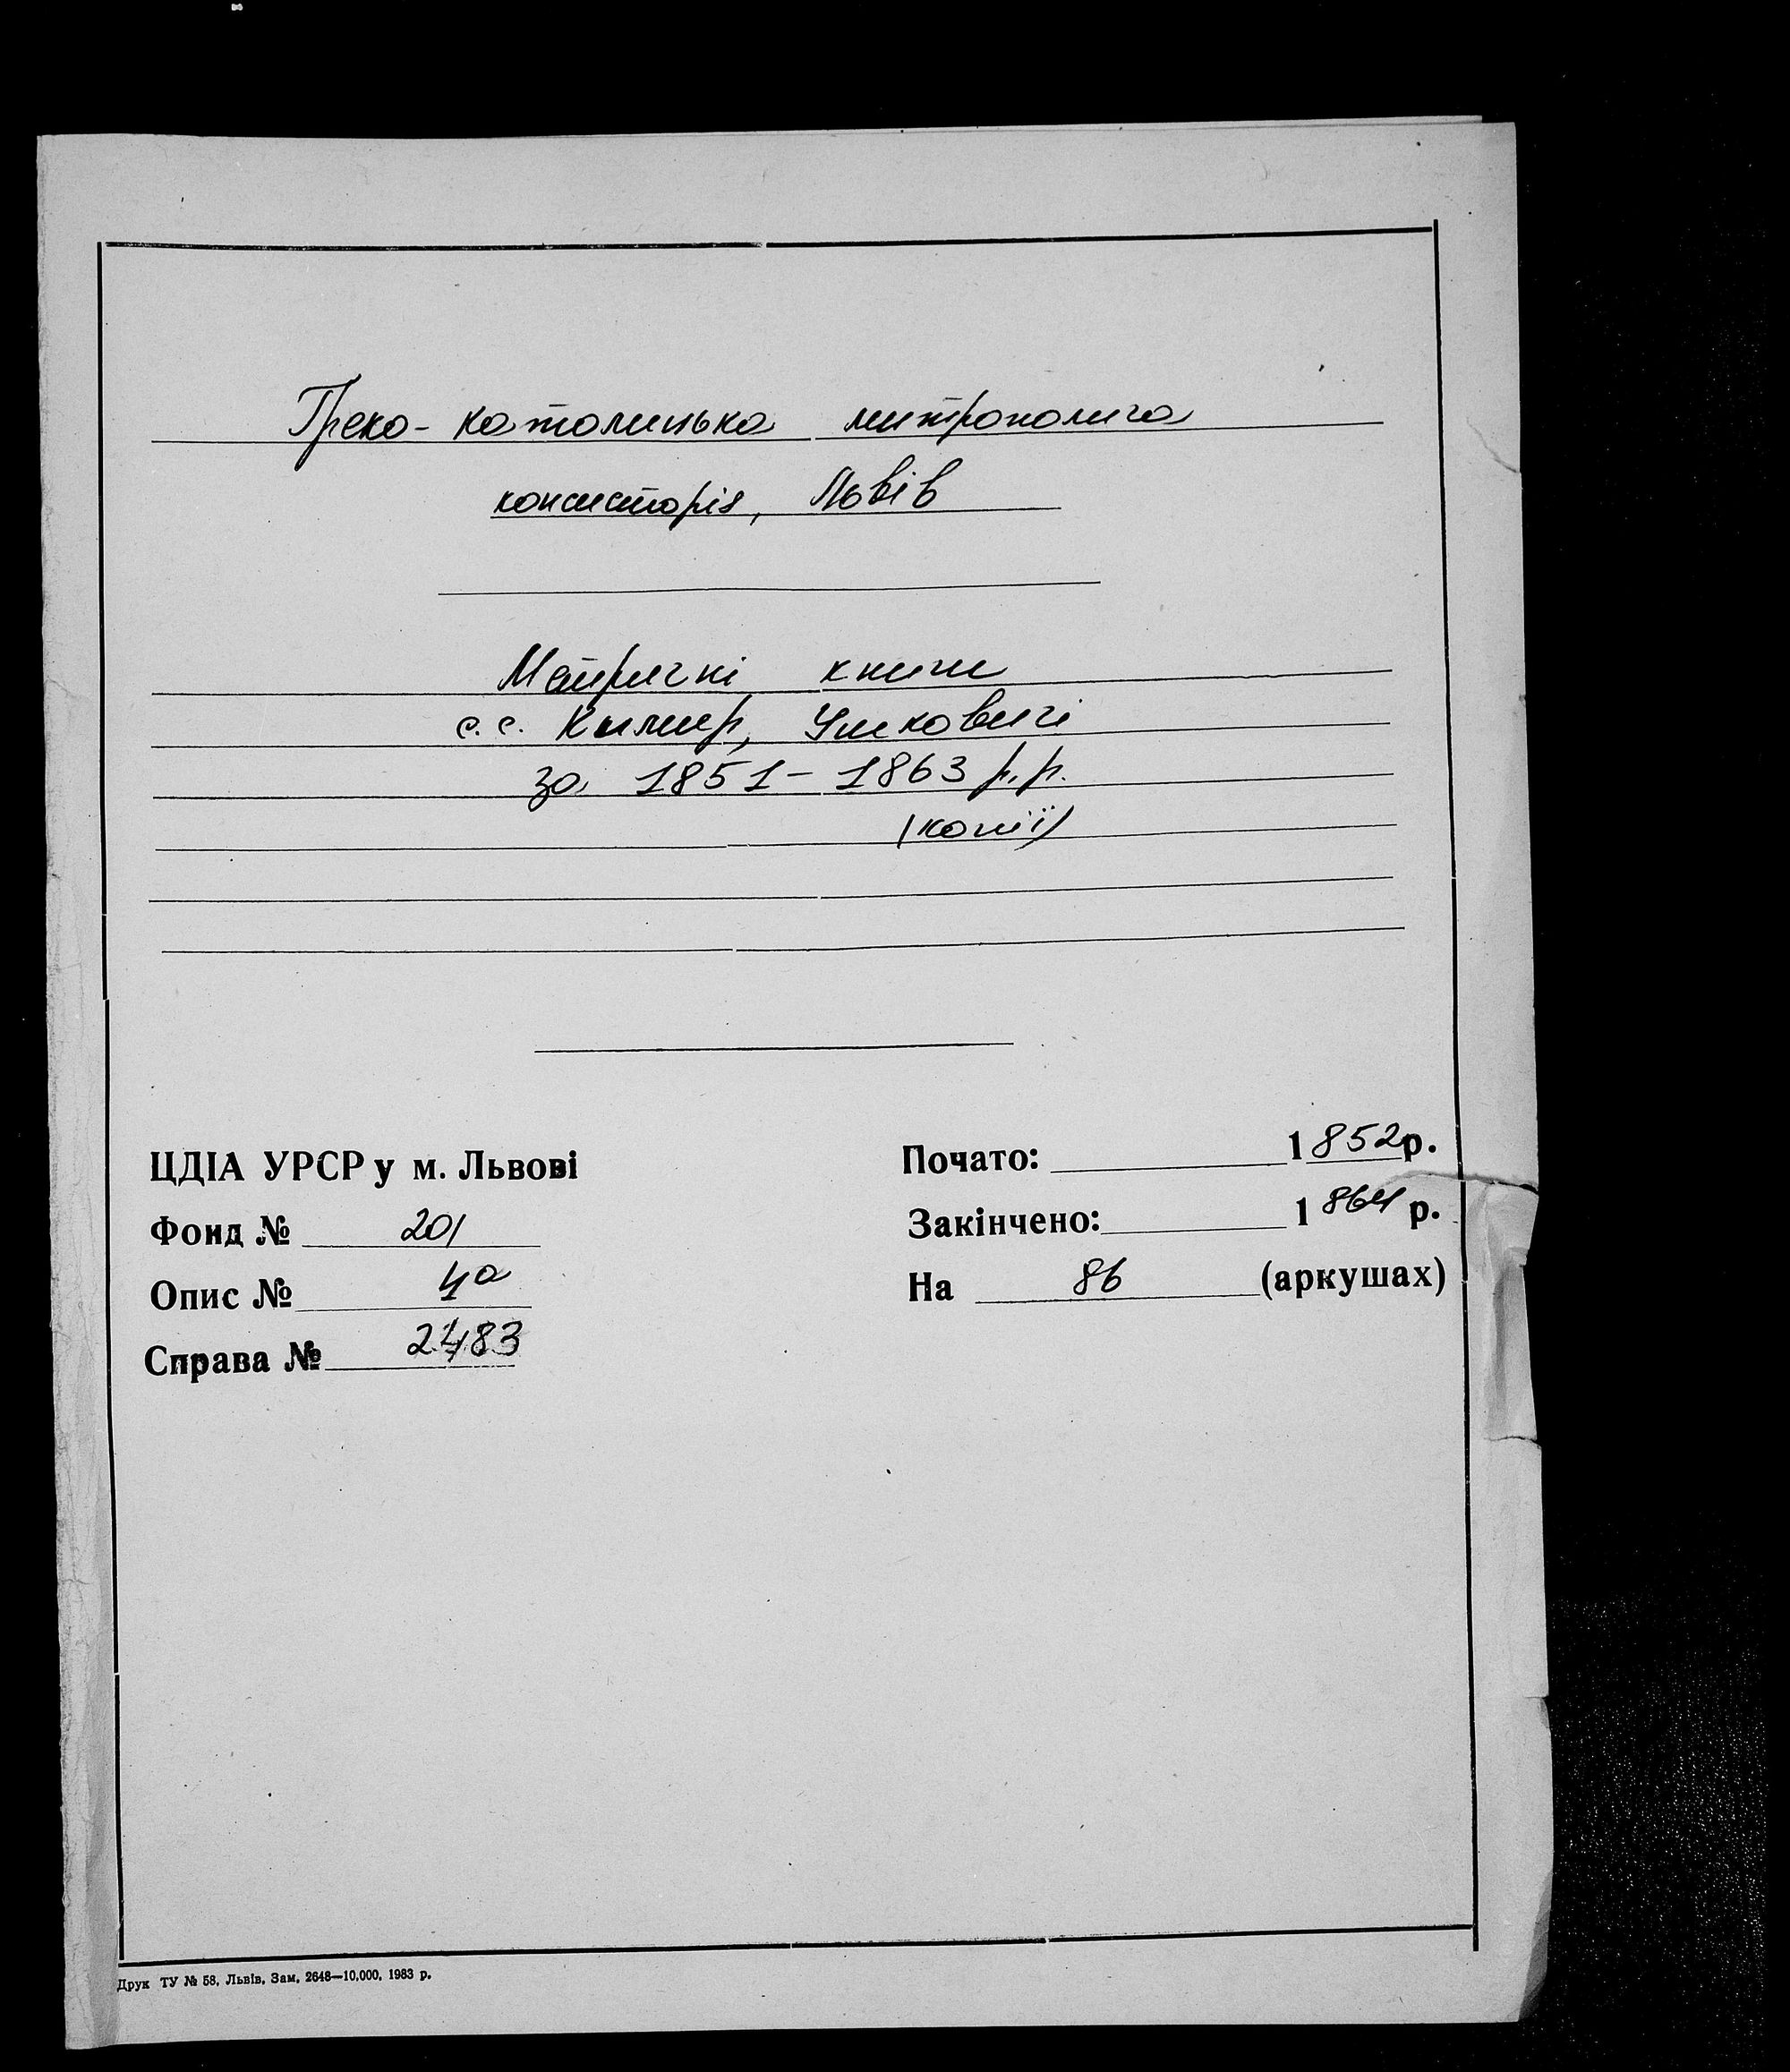 Греко-католицька митрополича
консисторія, Львів
Метричні книги
с.с. Кимир, Ушковичі
за 1851-1863 р.р.
(копії)
ЦДІА УРСР у м. Львові
Фонд № 201
Опис № 4а
Справа № 2483
Почато: 1852р.
Закінчено: 1864 р.
На 86 (аркушах)
Друк ТУ № 58, Львів, Зам, 2648—10,000, 1983 р.